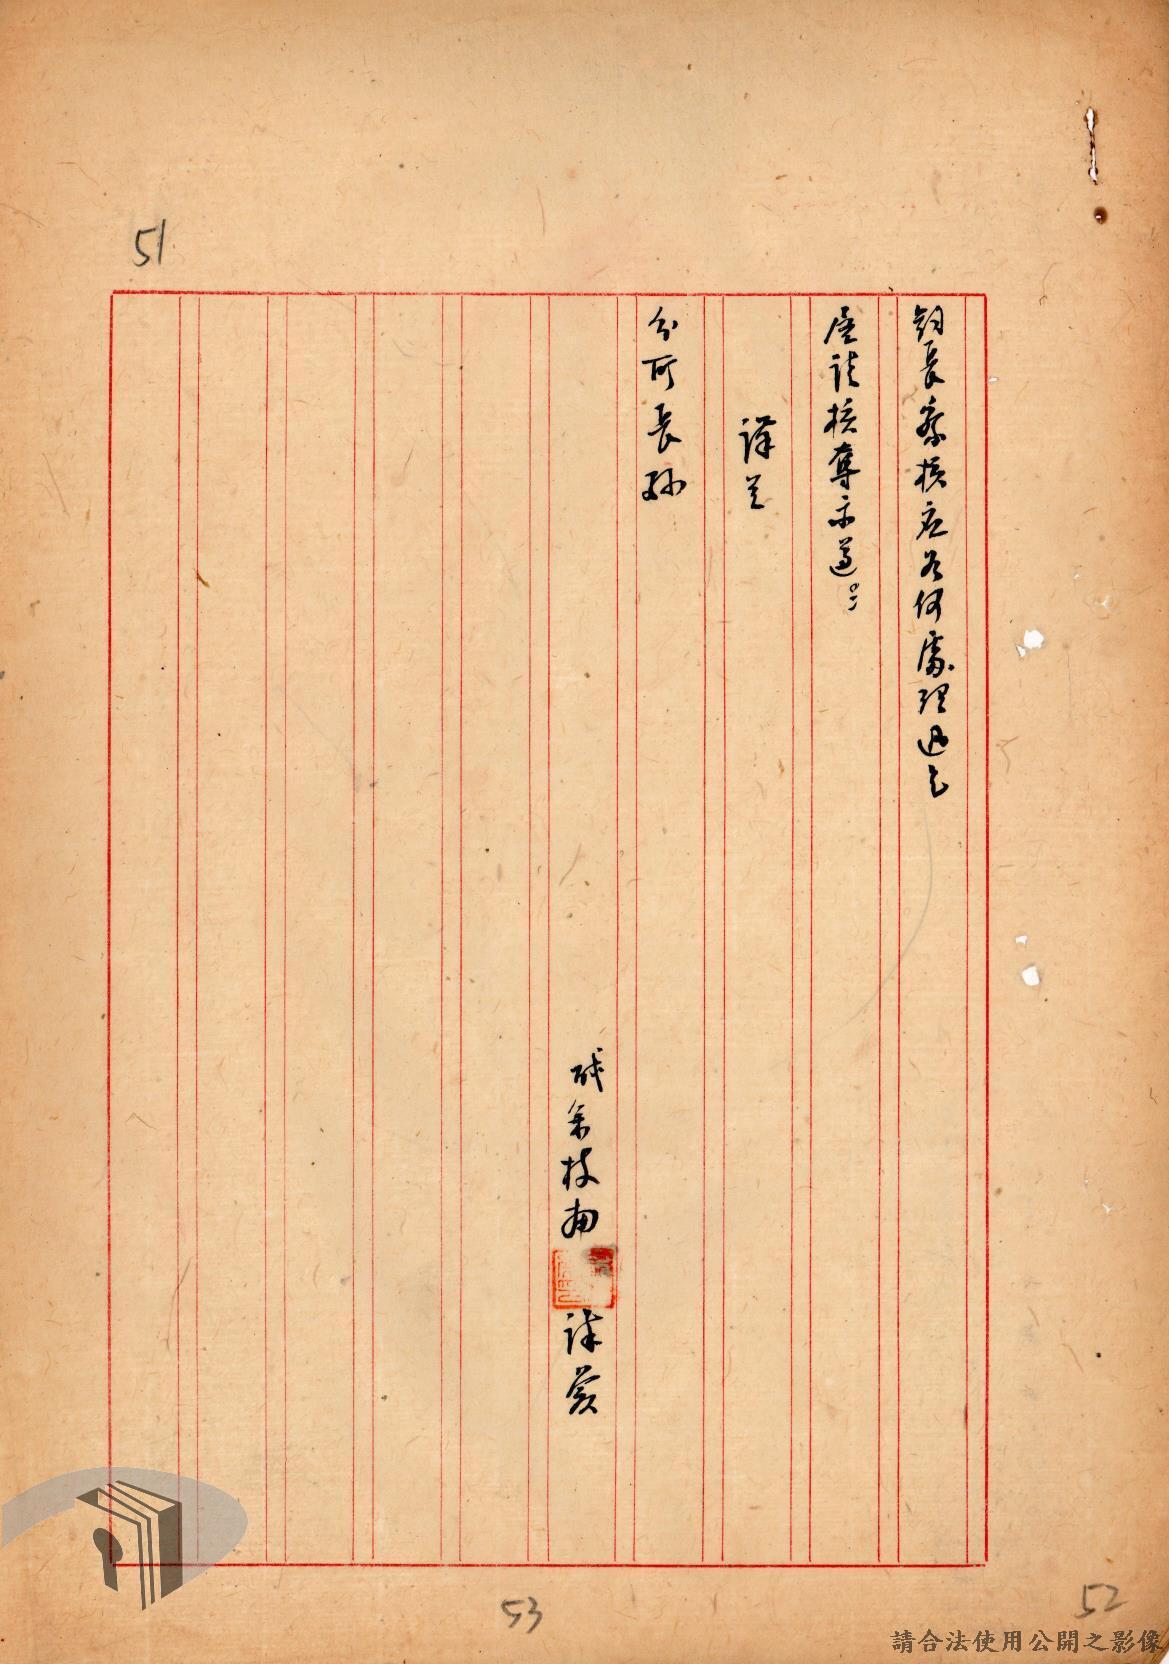 51
鈞長察核應如何處理迅乞
賜談核奪示遵。
謹呈
分所長孫
職余枝南 謹簽
53
52
請合法使用公開之影像